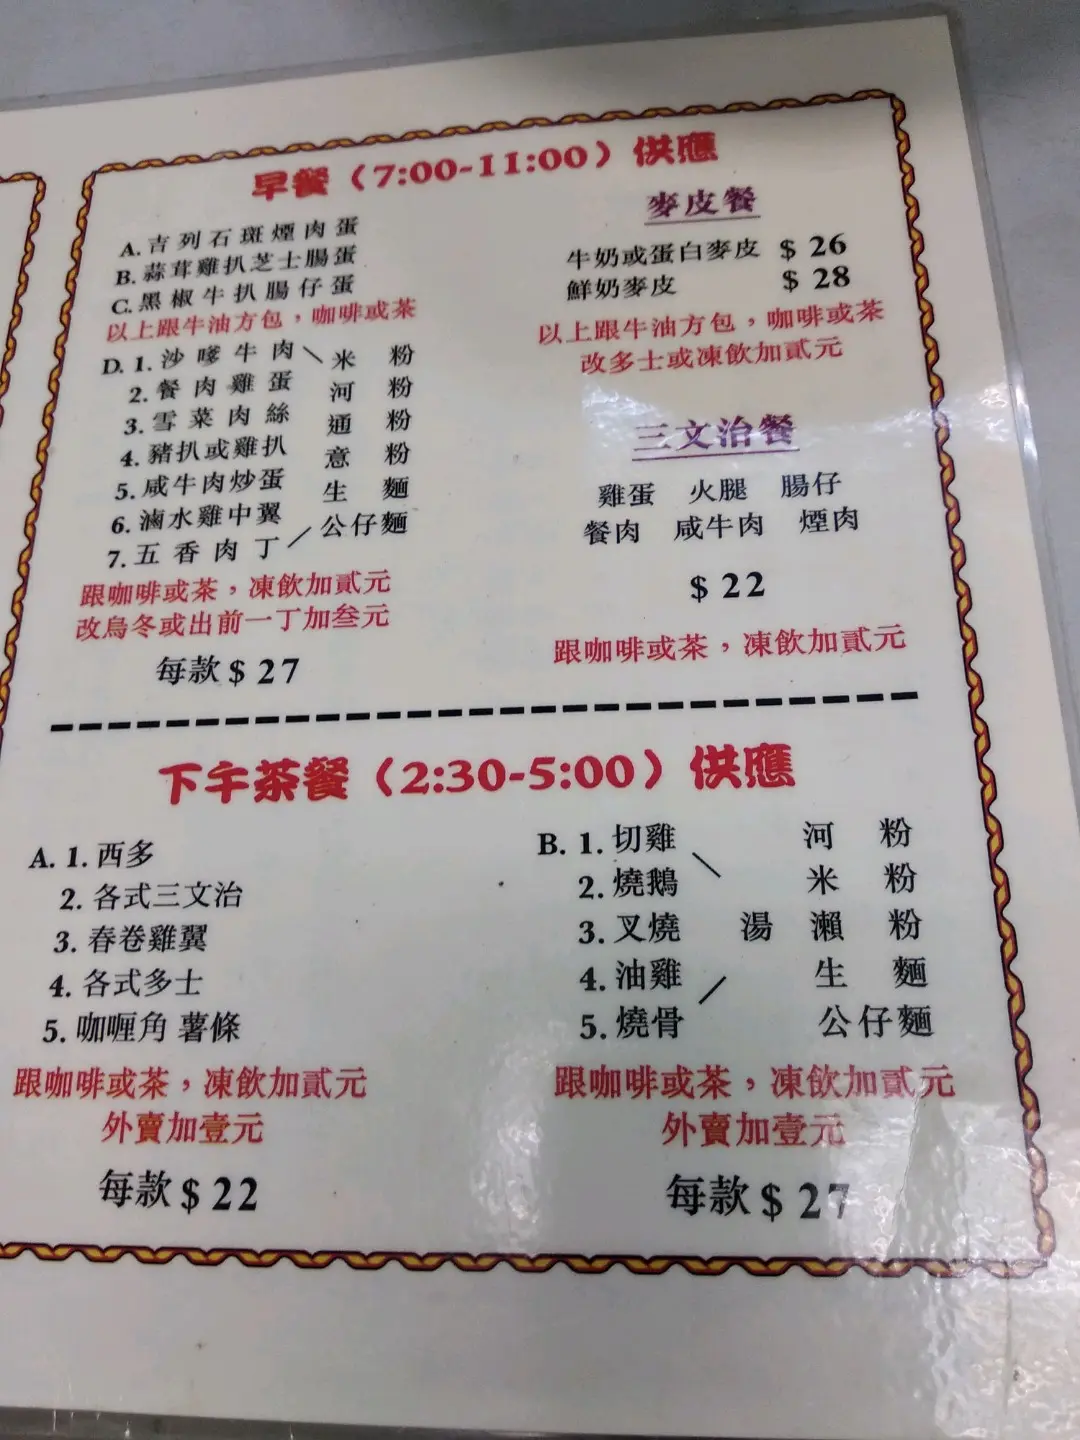 早餐（7:00-11:00）供應
A. 吉列石斑煙肉蛋
B. 蒜茸雞扒芝士腸蛋
C. 黑椒牛扒腸仔蛋
以上跟牛油方包，咖啡或茶
D. 1. 沙嗲牛肉 米粉
2. 餐肉雞蛋 河粉
3. 雪菜肉絲 通粉
4. 豬扒或雞扒 意粉
5. 咸牛肉炒蛋 生麵
6. 滷水雞中翼 公仔麵
7. 五香肉丁
跟咖啡或茶，凍飲加貳元
改烏冬或出前一丁加叁元
每款 $ 27
麥皮餐
牛奶或蛋白麥皮 $ 26
鮮奶麥皮 $ 28
以上跟牛油方包，咖啡或茶
改多士或凍飲加貳元
三文治餐
雞蛋 火腿 腸仔
餐肉 咸牛肉 煙肉
$ 22
跟咖啡或茶，凍飲加貳元
下午茶餐（2:30-5:00）供應
A. 1. 西多
2. 各式三文治
3. 春卷雞翼
4. 各式多士
5. 咖喱角 薯條
跟咖啡或茶，凍飲加貳元
外賣加壹元
每款 $ 22
B. 1. 切雞 河粉
2. 燒鵝 米粉
3. 叉燒 湯 瀨粉
4. 油雞 生麵
5. 燒骨 公仔麵
跟咖啡或茶，凍飲加貳元
外賣加壹元
每款 $ 27